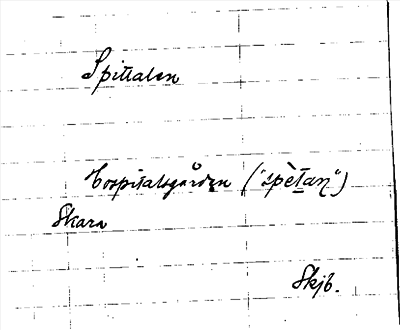 Spittalen
Hospitalsgården ("spètaṇ")
Skara
Skjb.